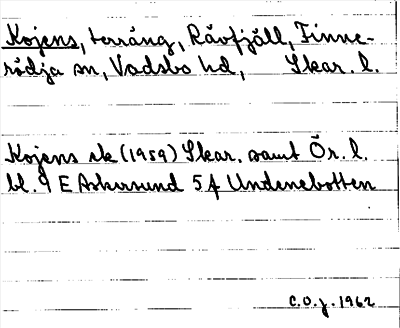 Kojens, terräng, Rävfjäll, Finne-
rödja sn, Vadsbo hd, Skar. l.
Kojens ek (1959) Skar. samt Ör. l.
bl. 9 E Askersund 5 f Undenebotten
C.O.J. 1962